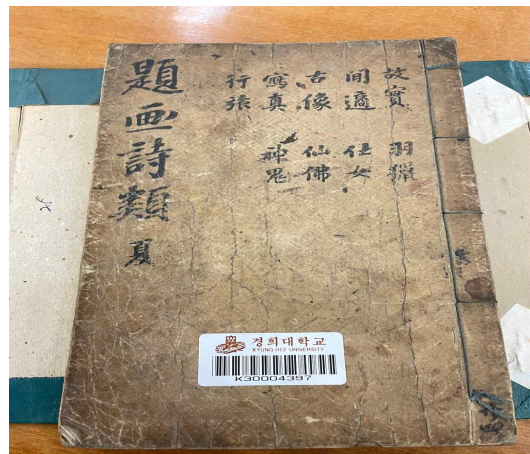 題画詩類 夏
故實 羽獵
閒適 仕女
古像 仙佛
寫真 神鬼
行旅
경희대학교
KYUNG HEE UNIVERSITY
K30004397